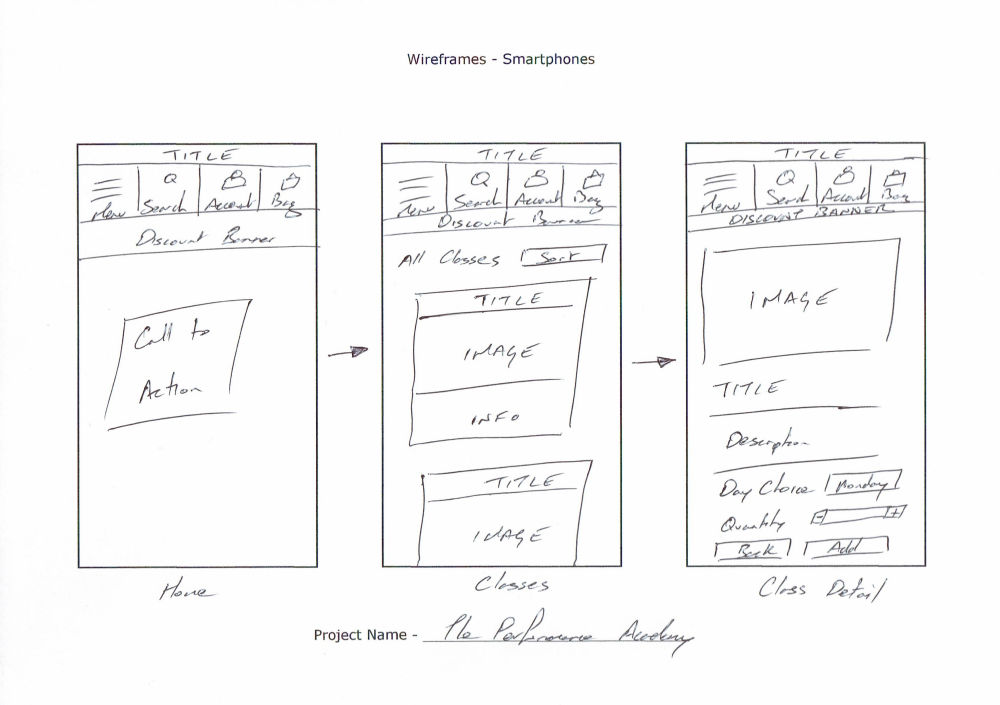 Wireframes - Smartphones
TITLE
Menu Search Account Bag
Discount Banner
Call to
Action
Home
TITLE
Menu Search Account Bag
Discount Banner
All Classes Sort
TITLE
IMAGE
INFO
TITLE
IMAGE
Classes
TITLE
Menu Search Account Bag
DISCOUNT BANNER
IMAGE
TITLE
Description
Day Choice Monday
Quantity - +
Back Add
Class Detail
Project Name - The Performance Academy